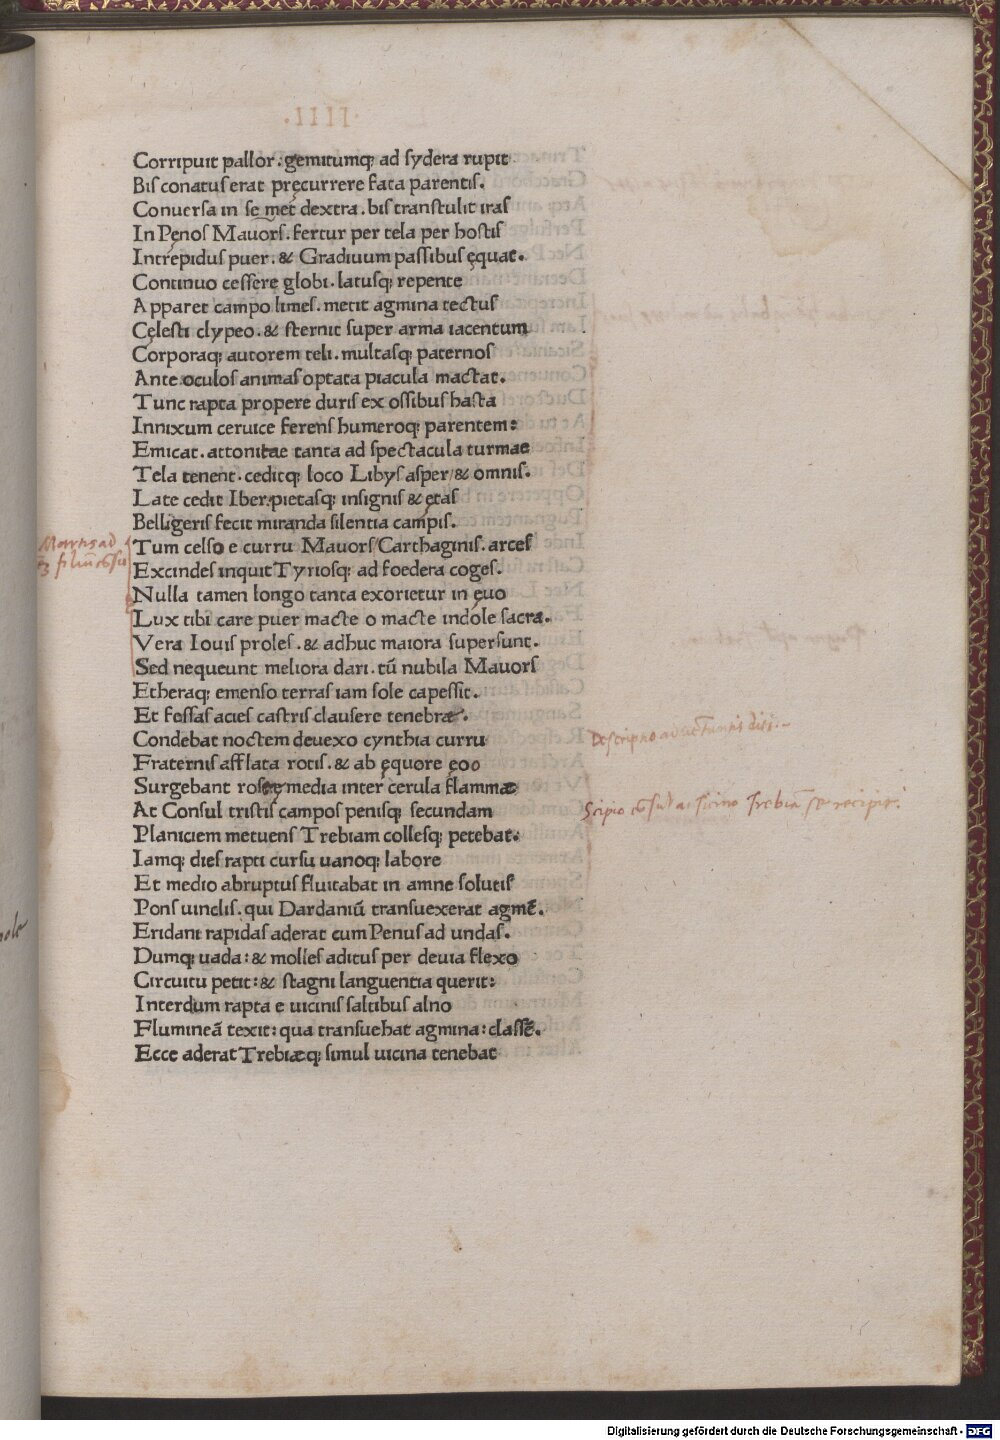 ·IIII·
Corripuit pallor. gemitumq; ad sydera rupit
Bis conatus erat pręcurrere fata parentis.
Conuersa in se met dextra. bis transtulit iras
In Pęnos Mauors. fertur per tela per hostis
Intrepidus puer. & Gradiuum passibus ęquat.
Continuo cessere globi. latusq; repente
Apparet campo limes. metit agmina tectus
Cęlesti clypeo. & sternit super arma iacentum
Corporaq; autorem teli. multasq; paternos
Ante oculos animas optata piacula mactat.
Tunc rapta propere duris ex ossibus hasta
Innixum ceruice ferens humeroq; parentem:
Emicat. attonitae tanta ad spectacula turmae
Tela tenent. ceditq; loco Libys asper/& omnis.
Late cedit Iber. pietasq; insignis & ętas
Belligeris fecit miranda silentia campis.
Tum celso e curru Mauors/Carthaginis. arces
Martis ad
filiū
Excindes inquit Tyriosq; ad foedera coges.
Nulla tamen longo tanta exorietur in ęuo
Lux tibi care puer macte o macte indole sacra.
Vera Iouis proles. & adhuc maiora supersunt.
Sed nequeunt meliora dari. tū nubila Mauors
Etheraq; emenso terras iam sole capessit.
Et fessas acies castris clausere tenebræ.
Descriptio
Condebat noctem deuexo cynthia curru
Fraternis afflata rotis. & ab ęquore ęoo
Surgebant roseę media inter cerula flammæ
At Consul tristis campos penisq; secundam
Scipio Trebiā se recipit.
Planiciem metuens Trebiam collesq; petebat.
Iamq; dies rapti cursu uanoq; labore
Et medio abruptus fluitabat in amne solutis
Pons uinclis. qui Dardaniū transuexerat agmē.
Eridani rapidas aderat cum Penus ad undas.
Dumq; uada: & molles aditus per deuia flexo
Circuitu petit: & stagni languentia querit:
Interdum rapta e uicinis saltibus alno
Flumineā texit: qua transuehat agmina: classē.
Ecce aderat Trebiæq; simul uicina tenebat
Digitalisierung gefördert durch die Deutsche Forschungsgemeinschaft - DFG